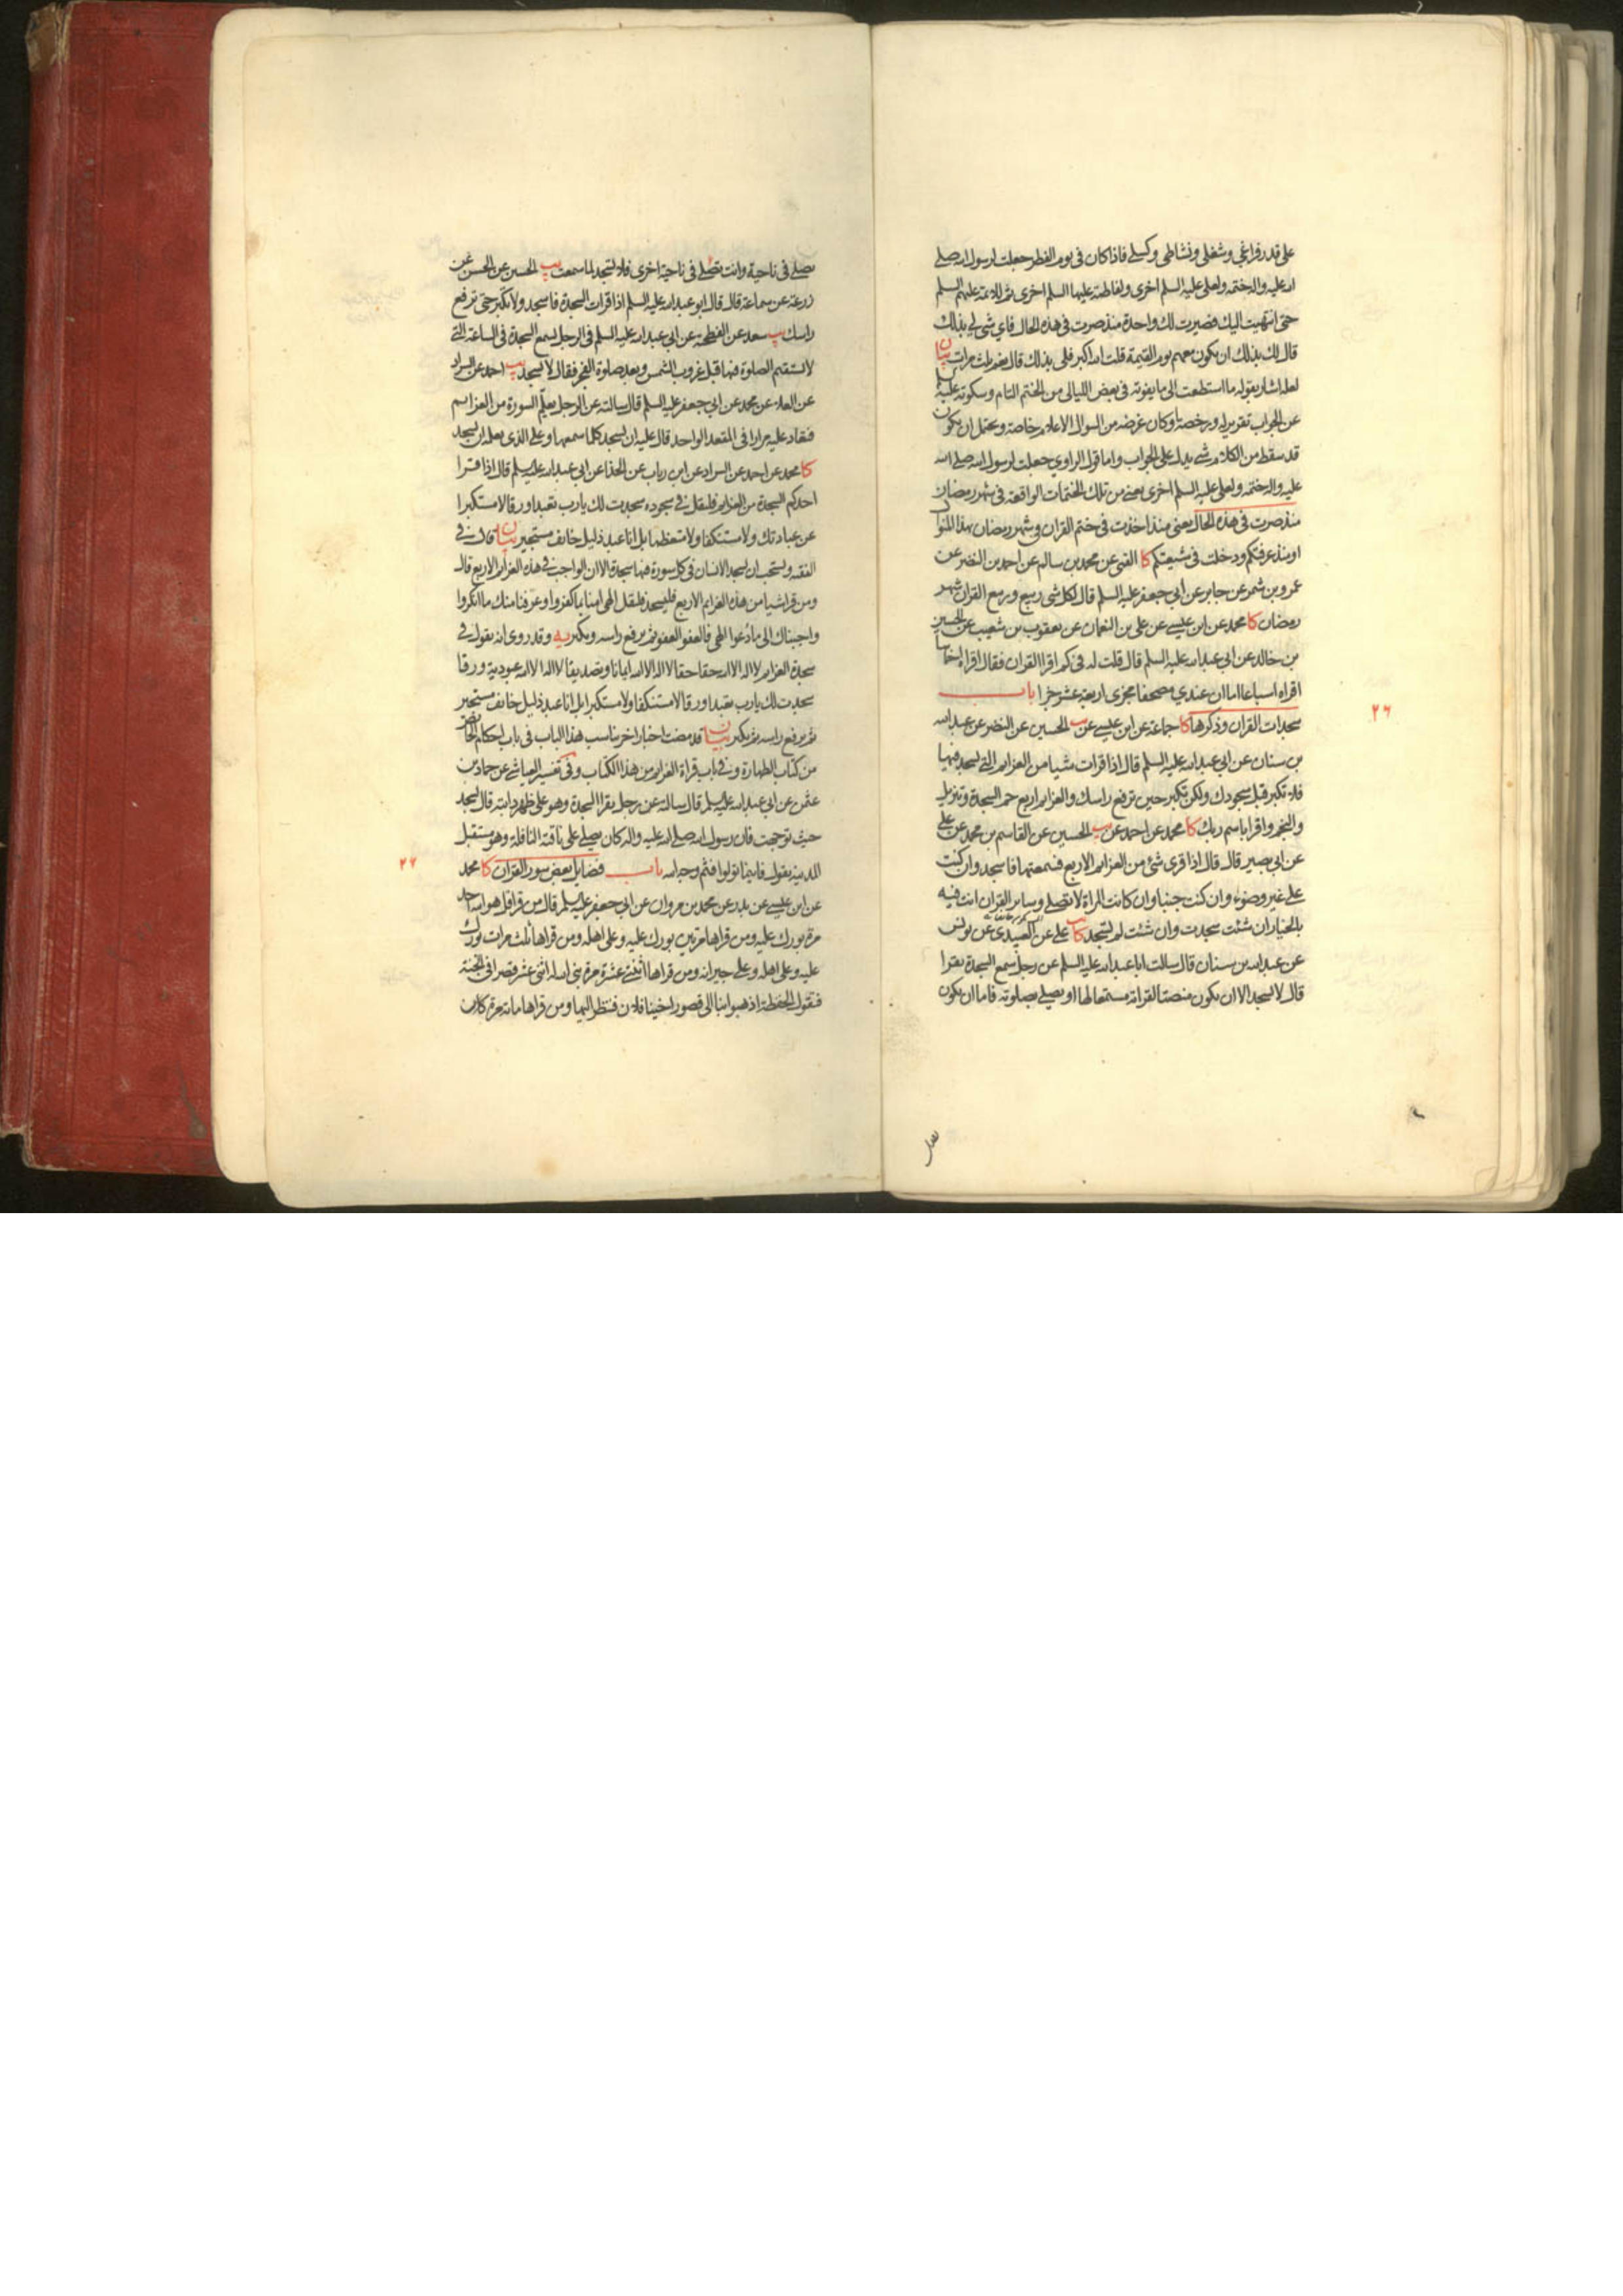 على قدر فراغي وشغلي ونشاطي وكسلي فاذا كان في يوم الفطر جعلت لرسول الله صلى
الله عليه واله ختمة ولعلي عليه السلم اخرى ولفاطمة عليها السلم اخرى ثم للائمة عليهم السلم
حتى انتهيت اليك فصيرت لك واحدة منذ صرت في هذه الحال فاي شئ لي بذلك
قال لك بذلك ان تكون معهم يوم القيمة قلت الله اكبر فلي بذلك قال نعم ثلث مرات بيان
لعله اشار بقوله ما استطعت الى ما يفوته في بعض الليالي من الختم التام وسكوته عليه
عن الجواب تقرير له ورخصة او كان غرضه من السؤال الاعلام خاصة ويحتمل ان يكون
قد سقط من الكلام شئ يدل على الجواب واما قول الراوي جعلت لرسول الله صلى الله
عليه واله ختمة ولعلي عليه السلم اخرى يعني من تلك الختمات الواقعة في شهر رمضان
منذ صرت في هذه الحال يعني منذ اخذت في ختم القران في شهر رمضان بهذا المنوال
او منذ عرفتكم ودخلت في شيعتكم كا القمي عن محمد بن سالم عن احمد بن النضر عن
عمرو بن شمر عن جابر عن ابي جعفر عليه السلم قال لكل شئ ربيع وربيع القران شهر
رمضان كا محمد عن ابن عيسى عن علي بن النعمان عن يعقوب بن شعيب عن الحسين
بن خالد عن ابي عبد الله عليه السلم قال قلت له في كم اقرا القران فقال اقراه اخماسا
اقراه اسباعا اما ان عندي مصحفا مجزى اربعة عشر جزا باب
٢٦
سجدات القران وذكرها كا جماعة عن ابن عيسى عن يب الحسين عن النضر عن عبد الله
بن سنان عن ابي عبد الله عليه السلم قال اذا قرات شيا من العزايم التي يسجد فيها
فلا تكبر قبل سجودك ولكن تكبر حين ترفع راسك والعزايم اربع حم السجدة وتنزيل
والنجم واقرا باسم ربك كا محمد عن احمد عن يب الحسين عن القاسم بن محمد عن علي
عن ابي بصير قال قال اذا قرئ شئ من العزايم الاربع فسمعتها فاسجد وان كنت
على غير وضوء وان كنت جنبا وان كانت المراة لا تصلي وساير القران انت فيه
بالخيار ان شئت سجدت وان شئت لم تسجد كا يب علي عن العبيدي عن يونس
عن عبد الله بن سنان قال سالت ابا عبد الله عليه السلم عن رجل سمع السجدة تقرا
قال لا يسجد الا ان يكون منصتا لقرائته مستمعا لها او يصلي بصلوته فاما ان يكون
يصلي في ناحية وانت تصلي في ناحية اخرى فلا تسجد لما سمعت يب الحسين عن الحسن عن
زرعة عن سماعة قال قال ابو عبد الله عليه السلم اذا قرات السجدة فاسجد ولا تكبر حتى ترفع
راسك يب سعد عن الفطحية عن ابي عبد الله عليه السلم في الرجل يسمع السجدة في الساعة التي
لا تستقيم الصلوة فيها قبل غروب الشمس وبعد صلوة الفجر فقال لا يسجد يب احمد عن السراد
عن العلا عن محمد عن ابي جعفر عليه السلم قال سالته عن الرجل يعلم السورة من العزايم
فتعاد عليه مرارا في المقعد الواحد قال عليه ان يسجد كلما سمعها وعلى الذي يعلمه ان يسجد
كا محمد عن احمد عن السراد عن ابن رياب عن الحذا عن ابي عبد الله عليه السلم قال اذا قرا
احدكم السجدة من العزايم فليقل في سجوده سجدت لك يا رب تعبدا ورقا لا مستكبرا
عن عبادتك ولا مستنكفا ولا متعظما بل انا عبد ذليل خايف مستجير بيان قال في
الفقيه ويستحب ان يسجد الانسان في كل سورة فيها سجدة الا ان الواجب في هذه العزايم الاربع قال
ومن قرا شيا من هذه العزايم الاربع فليسجد فليقل الهي امنا بما كفروا وعرفنا منك ما انكروا
واجبناك الى ما دعوا الهي فالعفو العفو ثم يرفع راسه ويكبر يه وقد روى انه يقول في
سجدة العزايم لا اله الا الله حقا حقا لا اله الا الله ايمانا وتصديقا لا اله الا الله عبودية ورقا
سجدت لك يا رب تعبدا ورقا لا مستنكفا ولا مستكبرا بل انا عبد ذليل خايف مستجير
ثم يرفع راسه ثم يكبر بيان قد مضت اخبار اخر تناسب هذا الباب في باب احكام الحايض
من كتاب الطهارة وفي باب قراة العزايم من هذا الكتاب وفي تفسير العياشي عن حماد بن
عثمن عن ابي عبد الله عليه السلم قال سالته عن رجل يقرا السجدة وهو على ظهر دابته قال يسجد
حيث توجهت فان رسول الله صلى الله عليه واله كان يصلي على ناقته النافلة وهو مستقبل
المدينة يقول فاينما تولوا فثم وجه الله باب فضايل بعض سور القران كا محمد
٢٦
عن ابن عيسى عن بدر عن محمد بن مروان عن ابي جعفر عليه السلم قال من قرا قل هو الله احد
مرة بورك عليه ومن قراها مرتين بورك عليه وعلى اهله ومن قراها ثلث مرات بورك
عليه وعلى اهله وعلى جيرانه ومن قراها اثنتي عشرة مرة بنى الله له اثنى عشر قصرا في الجنة
فتقول الحفظة اذهبوا بنا الى قصور اخينا فلان فننظر اليها ومن قراها ماة مرة كان